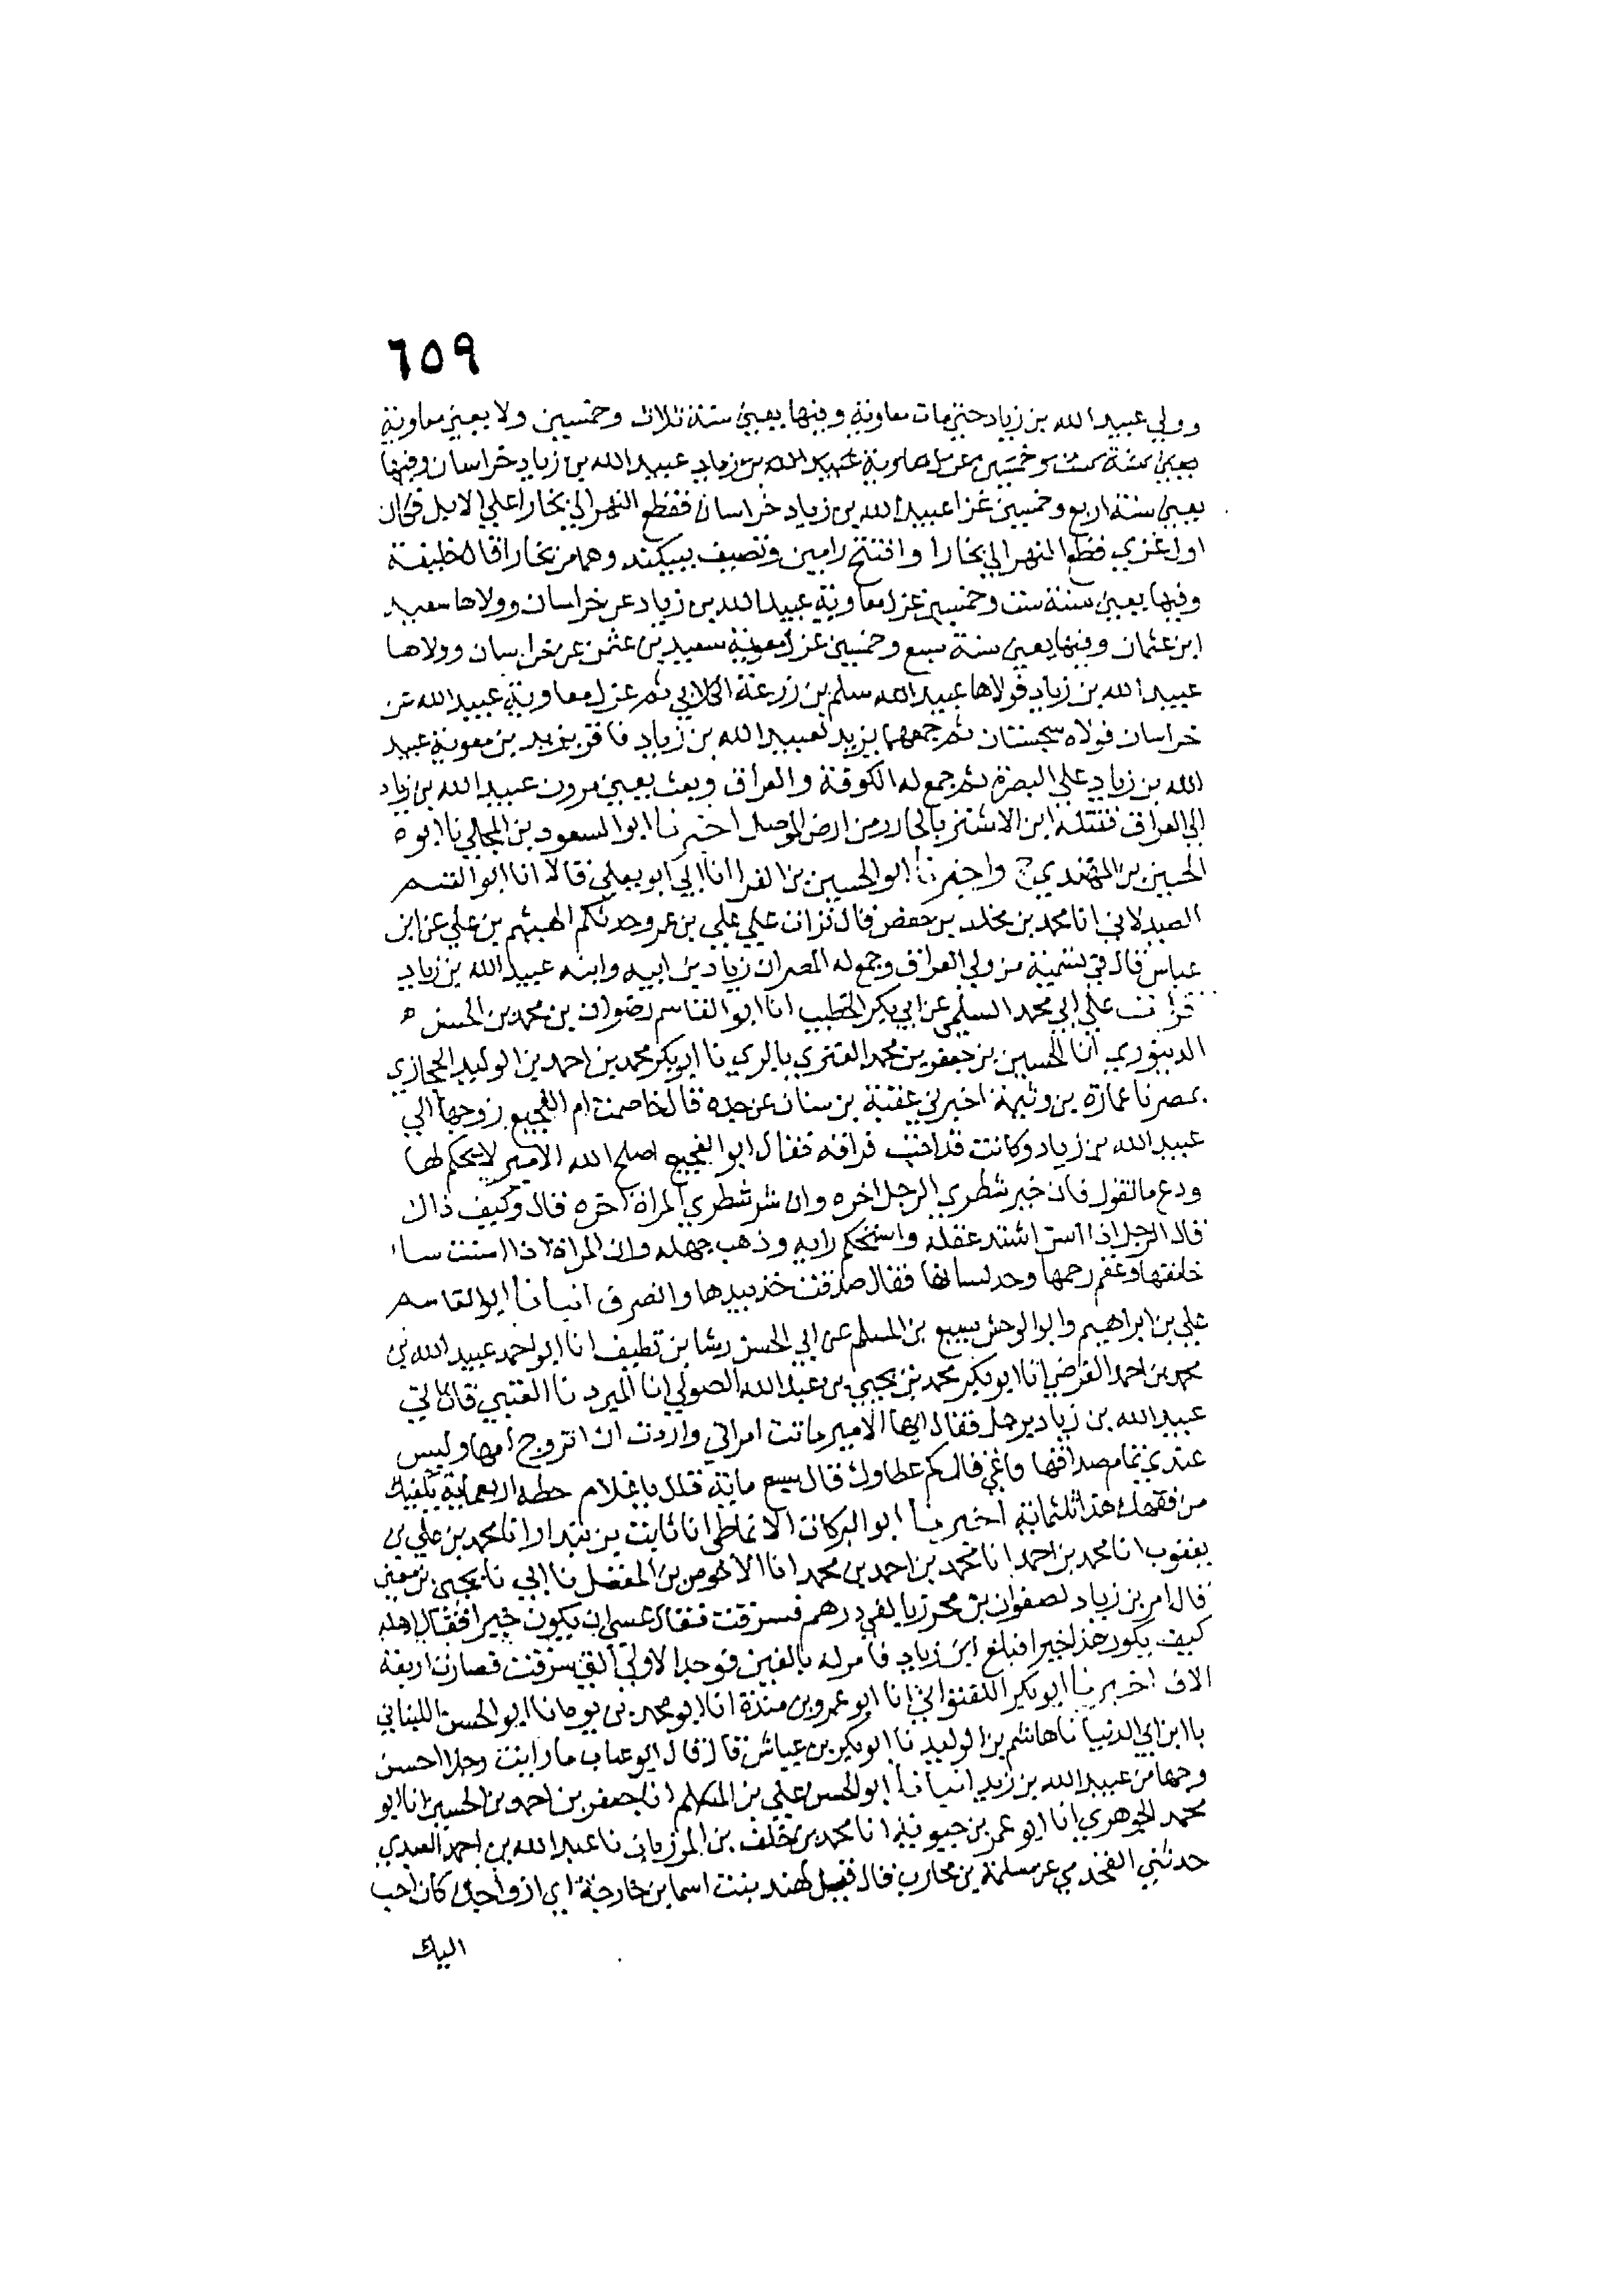 ٦٥٩
وولي عبيد الله بن زياد حتى مات معاوية وفيها يعني سنة ثلاث وخمسين ولا يعني معاوية
يعني سنة ست وخمسين عزل معاوية عبيد الله بن زياد عبيد الله بن زياد خراسان وفيها
يعني سنة اربع وخمسين غزا عبيد الله بن زياد خراسان فقطع النهر الي بخارا علي الابل فكان
اول عربي قطع النهر الي بخارا وافتتح رامين ونصيف بيكند وهما من بخارا قال خليفة
وفيها يعني سنة ست وخمسين عزل معاوية عبيد الله بن زياد عن خراسان وولاها سعيد
ابن عثمان وفيها يعني سنة سبع وخمسين عزل معوية سعيد بن عثمن عن خراسان وولاها
عبيد الله بن زياد فولاها عبيد الله سلم بن زرعة الكلابي ثم عزل معاوية عبيد الله عن
خراسان فولاه سجستان ثم جمعهما يزيد لعبيد الله بن زياد فاقر يزيد بن معوية عبيد
الله بن زياد علي البصرة ثم جمع له الكوفة والعراق وبعث يعني مرون عبيد الله بن زياد
الي العراق فقتله ابن الاشتر بالخازر من ارض الموصل اخبرنا ابو السعود بن المجلي نا ابو ه
الحسين بن المهتدي ح واخبرنا ابو الحسين بن الفرا انا ابي ابو يعلي قالا انا ابو القسم
الصيدلاني انا محمد بن مخلد بن حفص قال قرات علي علي بن عمرو حدثكم الهيثم بن عدي عن ابن
عياش قال في تسمية من ولي العراق وجمع له المصران زياد بن ابيه وابنه عبيد الله بن زياد
قرات علي ابي محمد السلمي عن ابي بكر الخطيب انا ابو القاسم رضوان بن محمد بن الحسن ه
الدينوري انا الحسين بن جعفر بن محمد العنزي بالري نا ابو بكر محمد بن احمد بن الوليد الحجازي
بمصر نا عمارة بن وثيمة اخبرني عقبة بن سنان عن جده قال خاصمت ام الفجيع زوجها الي
عبيد الله بن زياد وكانت قد احبت فراقه فقال ابو الفجيع اصلح الله الامير لا تحكم لها
ودع ما تقول فان خير شطري الرجل اخره وان شر شطري المراة اخره قال وكيف ذاك
قال الرجل اذا اسن اشتد عقله واستحكم رايه وذهب جهله وان المراة اذا اسنت ساء
خلقها وعقم رحمها وحد لسانها فقال صدقت خذ بيدها وانصرف انبانا ابو القاسم
علي بن ابراهيم وابو الوحش سبيع بن المسلم عن ابي الحسن رشا بن نظيف انا ابو احمد عبيد الله بن
محمد بن احمد الفرضي انا ابو بكر محمد بن يحيي بن عبد الله الصولي انا المبرد نا العتبي قال اتي
عبيد الله بن زياد برجل فقال ايها الامير ماتت امراتي واردت ان اتزوج امها وليس
عندي تمام صداقها فاعني قال كم عطاوك قال سبع ماية قال يا غلام حط اربعماية يكفيك
من فقهك هذا ثلثماية اخبرنا ابو البركات الانماطي انا ثابت بن بندار انا محمد بن علي بن
يعقوب انا محمد بن احمد انا محمد بن احمد بن محمد انا الاحوص بن المفضل نا ابي نا يحيي بن معين
قال امر بن زياد لصفوان بن محرز بالفي درهم فسرقت فقال عسي ان يكون خيرا فقال اهله
كيف يكون هذا خيرا فبلغ ابن زياد فامر له بالفين فوجد الاولي التي سرقت فصارت اربعة
الاف اخبرنا ابو بكر اللفتواني انا ابو عمرو بن مندة انا ابو محمد بن يوه انا ابو الحسن اللبناني
نا ابن ابي الدنيا نا هاشم بن الوليد نا ابو بكر بن عياش قال قال ابو عتاب ما رايت رجلا احسن
وجها من عبيد الله بن زيد انبانا ابو الحسن علي بن المسلم انا جعفر بن احمد بن الحسين انا ابو
محمد الجوهري انا ابو عمر بن حيوية انا محمد بن خلف بن المرزبان نا عبد الله بن احمد العبدي
حدثني القحذمي عن مسلمة بن محارب قال قيل لهند بنت اسما بن خارجة اي ازواجك كان احب
اليك